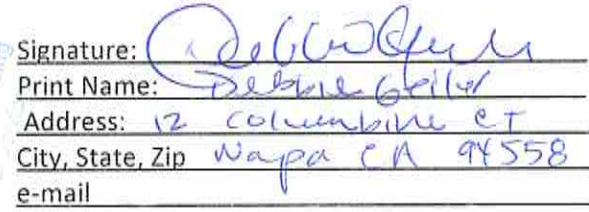 Signature:
Print Name: Debbie
Address: 12 Columbine CT
City, State, Zip Napa CA 94558
e-mail